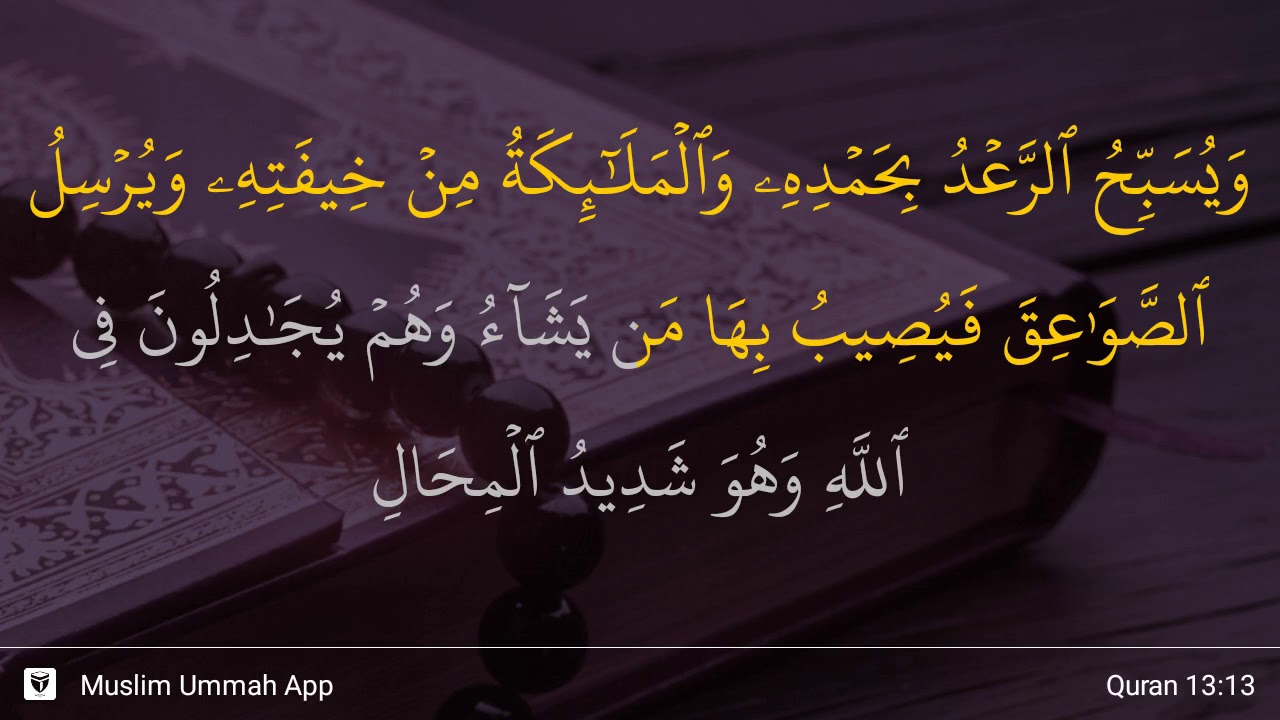 وَيُسَبِّحُ ٱلرَّعْدُ بِحَمْدِهِۦ وَٱلْمَلَـٰٓئِكَةُ مِنْ خِيفَتِهِۦ وَيُرْسِلُ
ٱلصَّوَٰعِقَ فَيُصِيبُ بِهَا مَن يَشَآءُ وَهُمْ يُجَـٰدِلُونَ فِى
ٱللَّهِ وَهُوَ شَدِيدُ ٱلْمِحَالِ
Muslim Ummah App
Quran 13:13